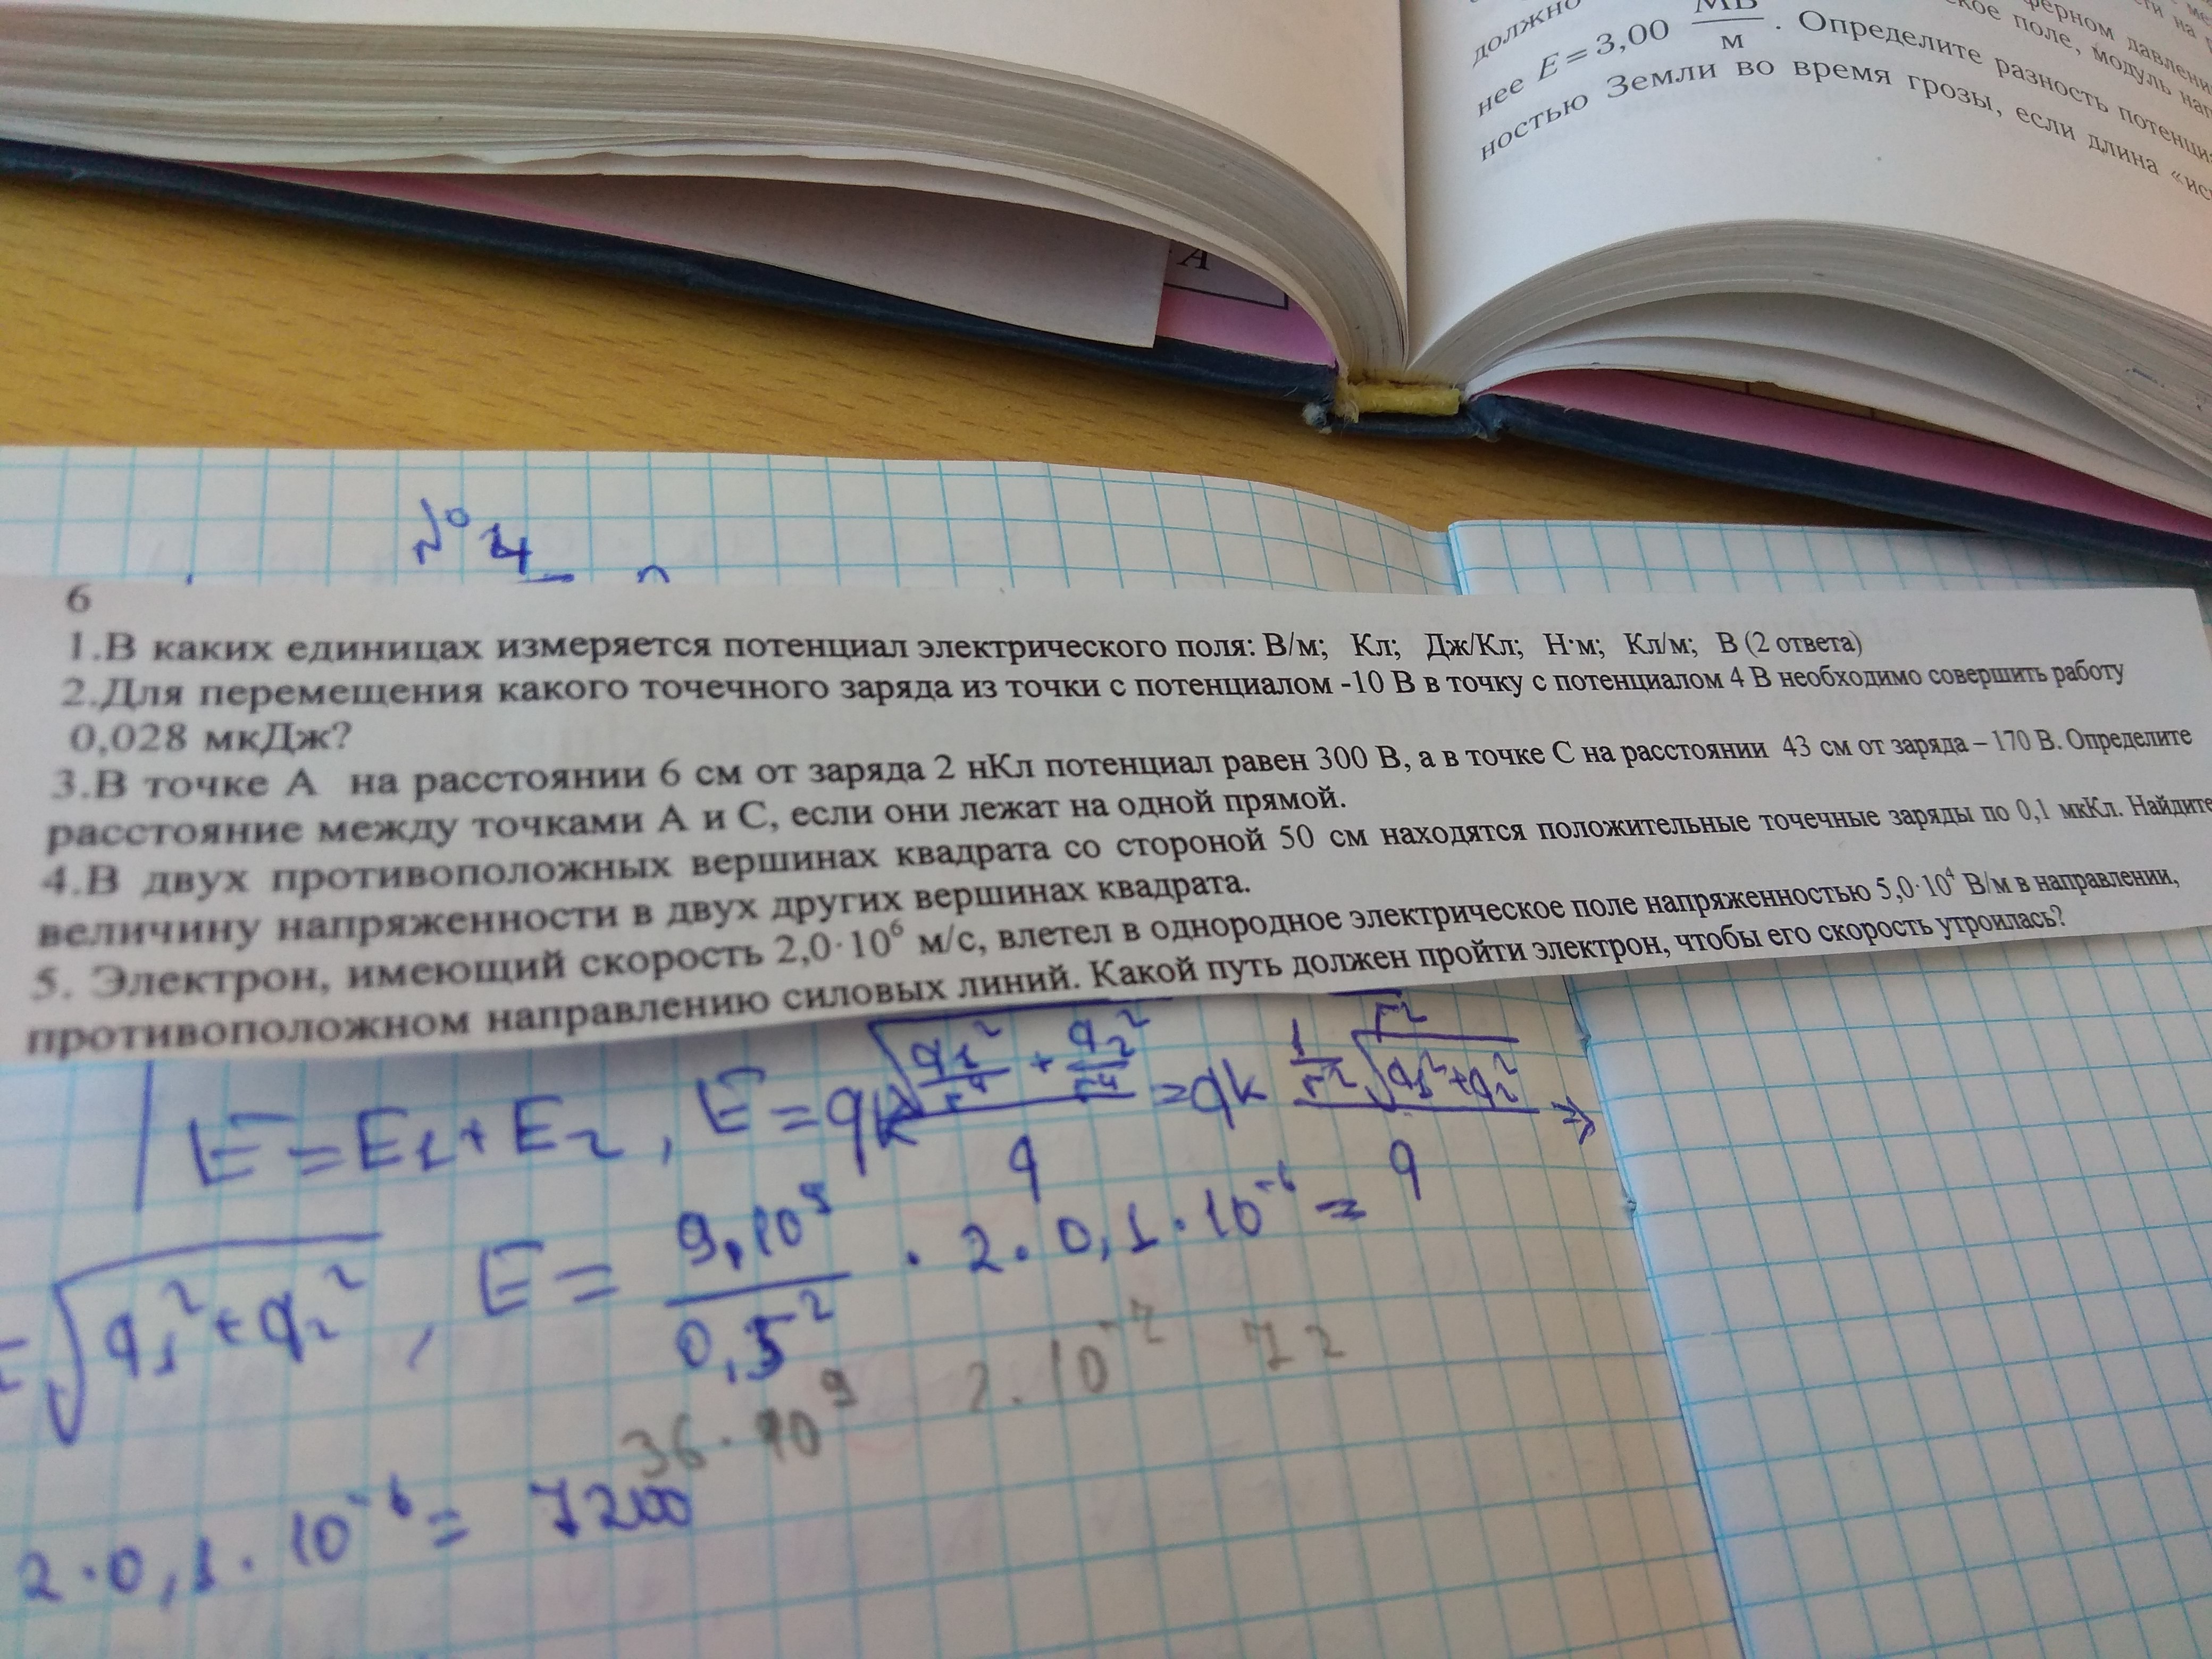 должно
нее E = 3,00 МВ/м . Определите разность
ностью Земли во время грозы, если длина
ферном давлени
ское поле, модуль
А
№ 4
6
1.В каких единицах измеряется потенциал электрического поля: В/м; Кл; Дж/Кл; Н·м; Кл/м; В (2 ответа)
2.Для перемещения какого точечного заряда из точки с потенциалом -10 В в точку с потенциалом 4 В необходимо совершить работу
0,028 мкДж?
3.В точке А на расстоянии 6 см от заряда 2 нКл потенциал равен 300 В, а в точке С на расстоянии 43 см от заряда – 170 В. Определите
расстояние между точками А и С, если они лежат на одной прямой.
4.В двух противоположных вершинах квадрата со стороной 50 см находятся положительные точечные заряды по 0,1 мкКл. Найдите
величину напряженности в двух других вершинах квадрата.
5. Электрон, имеющий скорость 2,0·10⁶ м/с, влетел в однородное электрическое поле напряженностью 5,0·10⁴ В/м в направлении,
противоположном направлению силовых линий. Какой путь должен пройти электрон, чтобы его скорость утроилась?
E = E₁ + E₂ , E = qk √(q₁²/r⁴ + q₂²/r⁴) / q = qk 1/r² √(q₁²+q₂²) / q ⇒
= √(q₁²+q₂²) , E = 9·10⁹ / 0,5² · 2 · 0,1 · 10⁻⁶ =
36 · 10⁹ 2 · 10⁻⁷ 72
2 · 0,1 · 10⁻⁶ = 7200